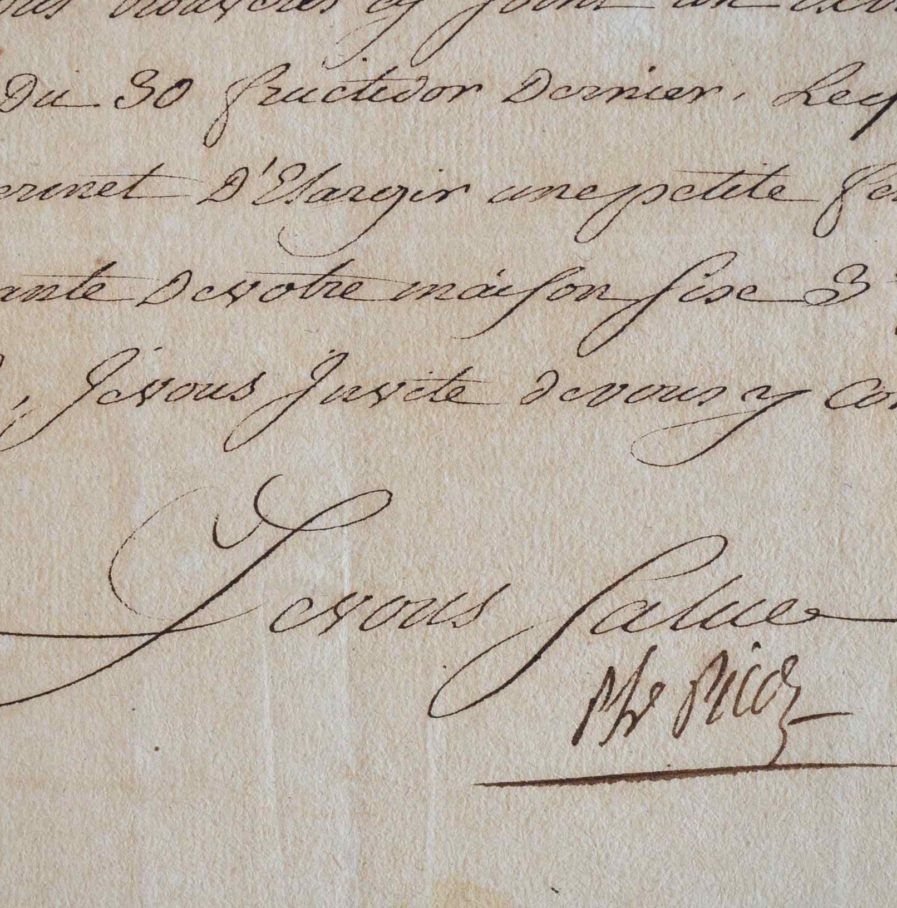 trouverés cy joint un
Du 30 fructidor Dernier, Leq
ermet D'Elargir une petite fe
ante De votre maison Sise 3
, Je vous Invite de vous y con
Je vous Salue
Phe Picot